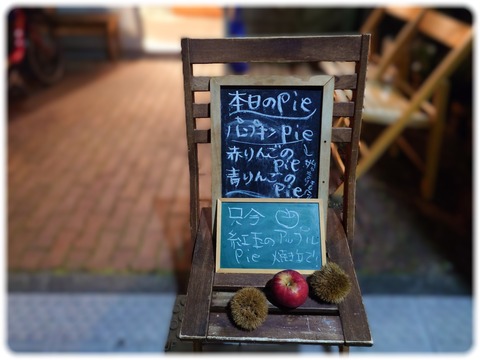 本日のPie
パンプキンPie
赤りんごの
Pie
青りんごの
Pie
只今
紅玉のアップル
Pie 焼拉て!